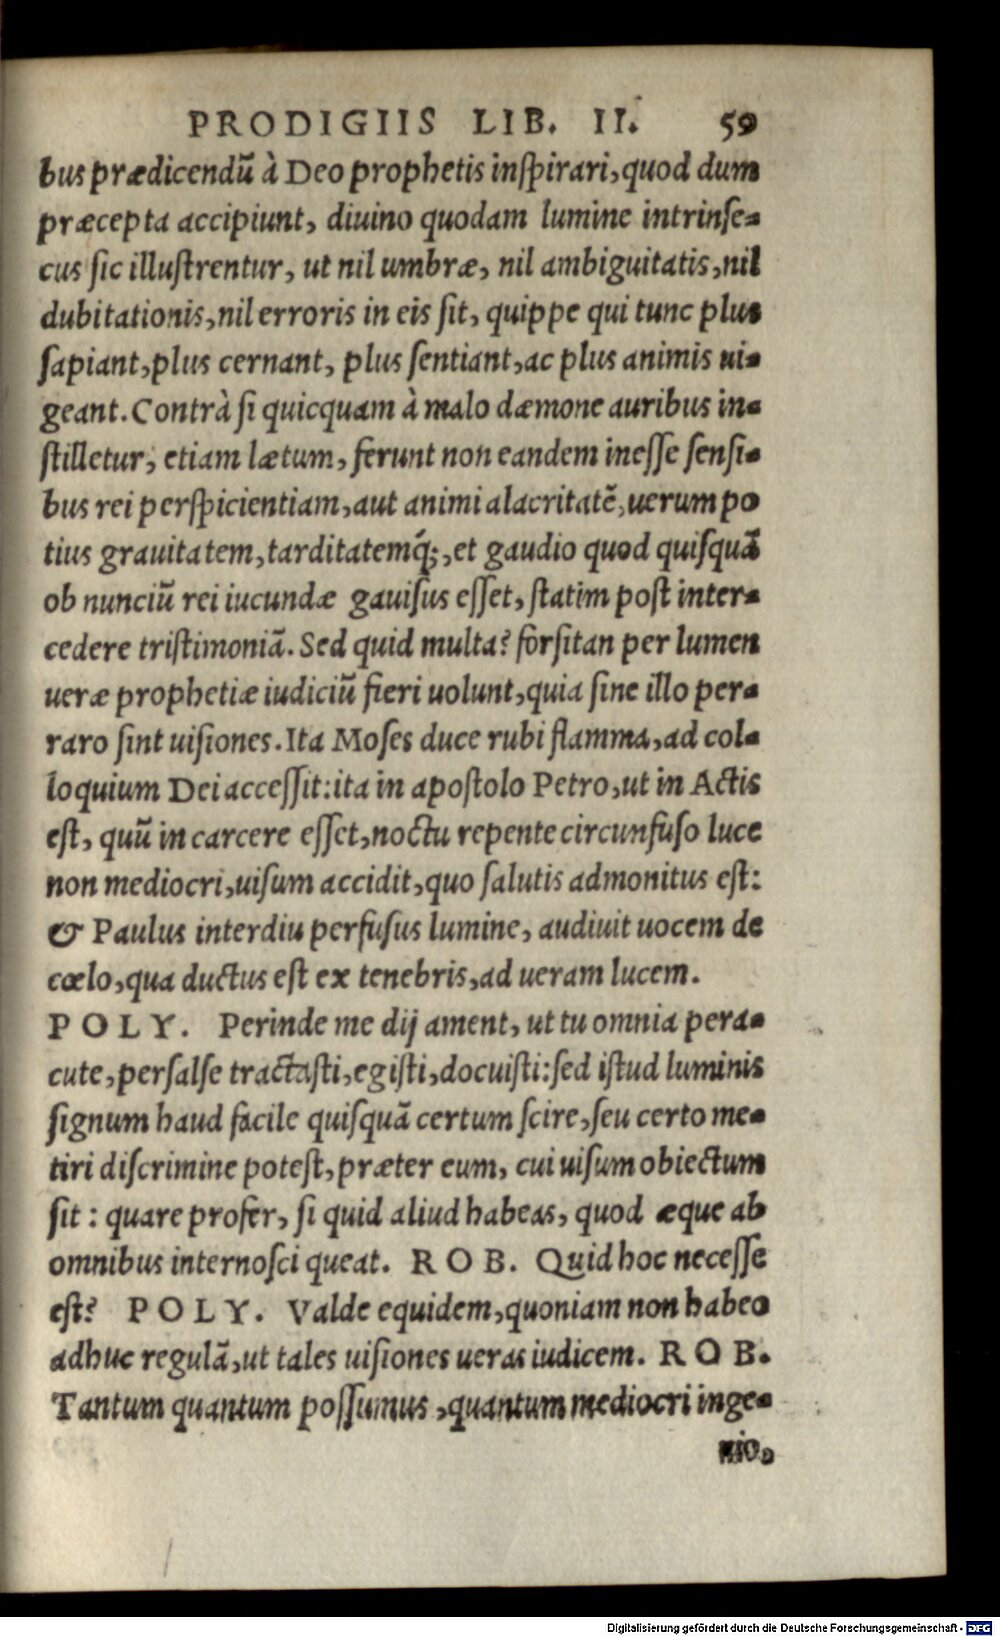 PRODIGIIS LIB. II. 59
bus prædicendū à Deo prophetis inſpirari, quod dum
præcepta accipiunt, diuino quodam lumine intrinſe-
cus ſic illuſtrentur, ut nil umbræ, nil ambiguitatis, nil
dubitationis, nil erroris in eis ſit, quippe qui tunc plus
ſapiant, plus cernant, plus ſentiant, ac plus animis ui-
geant. Contrà ſi quicquam à malo dæmone auribus in-
ſtilletur, etiam lætum, ferunt non eandem ineſſe ſenſi-
bus rei perſpicientiam, aut animi alacritatē, uerum po
tius grauitatem, tarditatemq́;, et gaudio quod quiſquā
ob nunciū rei iucundæ gauiſus eſſet, ſtatim poſt inter-
cedere triſtimoniā. Sed quid multa? forſitan per lumen
ueræ prophetiæ iudiciū fieri uolunt, quia ſine illo per-
raro ſint uiſiones. Ita Moſes duce rubi flamma, ad col-
loquium Dei acceſſit: ita in apoſtolo Petro, ut in Actis
eſt, quū in carcere eſſet, noctu repente circunfuſo luce
non mediocri, uiſum accidit, quo ſalutis admonitus eſt:
& Paulus interdiu perfuſus lumine, audiuit uocem de
cœlo, qua ductus eſt ex tenebris, ad ueram lucem.
POLY. Perinde me dij ament, ut tu omnia pera-
cute, perſalſe tractaſti, egiſti, docuiſti: ſed iſtud luminis
ſignum haud facile quiſquā certum ſcire, ſeu certo me-
tiri diſcrimine poteſt, præter eum, cui uiſum obiectum
ſit: quare profer, ſi quid aliud habeas, quod æque ab
omnibus internoſci queat. ROB. Quid hoc neceſſe
eſt? POLY. Valde equidem, quoniam non habeo
adhuc regulā, ut tales uiſiones ueras iudicem. ROB.
Tantum quantum poſſumus, quantum mediocri inge-
nio,
Digitalisierung gefördert durch die Deutsche Forschungsgemeinschaft - DFG